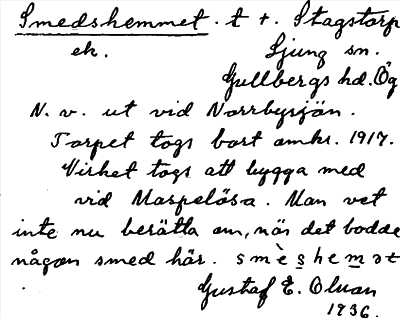 Smedshemmet. t t. Stagstorp
ek. Ljung sn.
Gullbergs hd. Ög
N. v. ut vid Norrbysjön.
Torpet togs bort omkr. 1917.
Virket togs att bygga med
vid Maspelösa. Man vet
inte nu berätta om, när det bodde
någon smed här. smèshemət
Gustaf E. Olsson
1936.